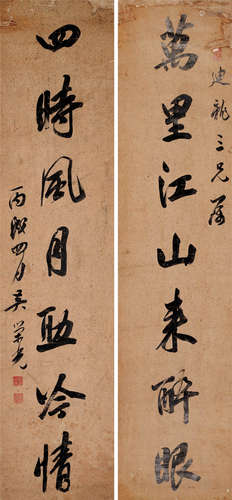 迪龍三兄屬
萬里江山來醉眼
四時風月助吟情
丙戌四月吳榮光